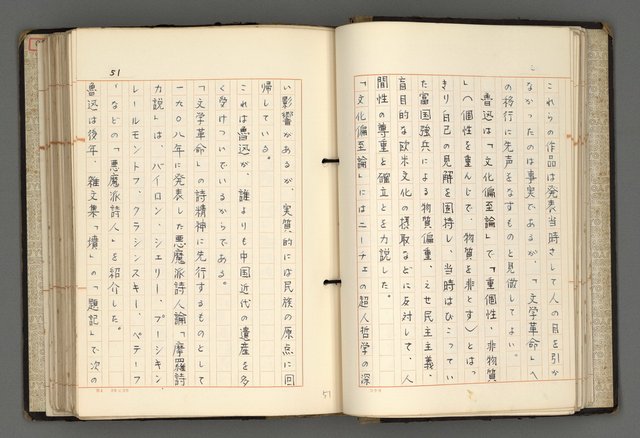 これらの作品は発表当時さして人の目を引か
なかったのは事実であるが、「文学革命」へ
の移行に先声をなすものと見做してよい。
魯迅は「文化偏至論」で「重個性、非物質
」（個性を重んじて、物質を非とす）とはっ
きり自己の見解を固持し、当時はびこってい
た富国強兵による物質偏重、えせ民主主義、
盲目的な欧米文化の摂取などに反対して、人
間性の尊重と確立とを力説した。
「文化偏至論」にはニーチェの超人哲学の深
51
い影響があるが、実質的には民族の原点に回
帰している。
これは魯迅が、誰よりも中国近代の遺産を多
く受けついでいるからである。
「文学革命」の詩精神に先行するものとして
一九〇八年に発表した悪魔派詩人論「摩羅詩
力説」は、バイロン、シェリー、プーシキン
レールモントフ、クラシンスキー、ペテーフ
ィなどの「悪魔派詩人」を紹介した。
魯迅は後年、雑文集「墳」の「題記」で次の
51